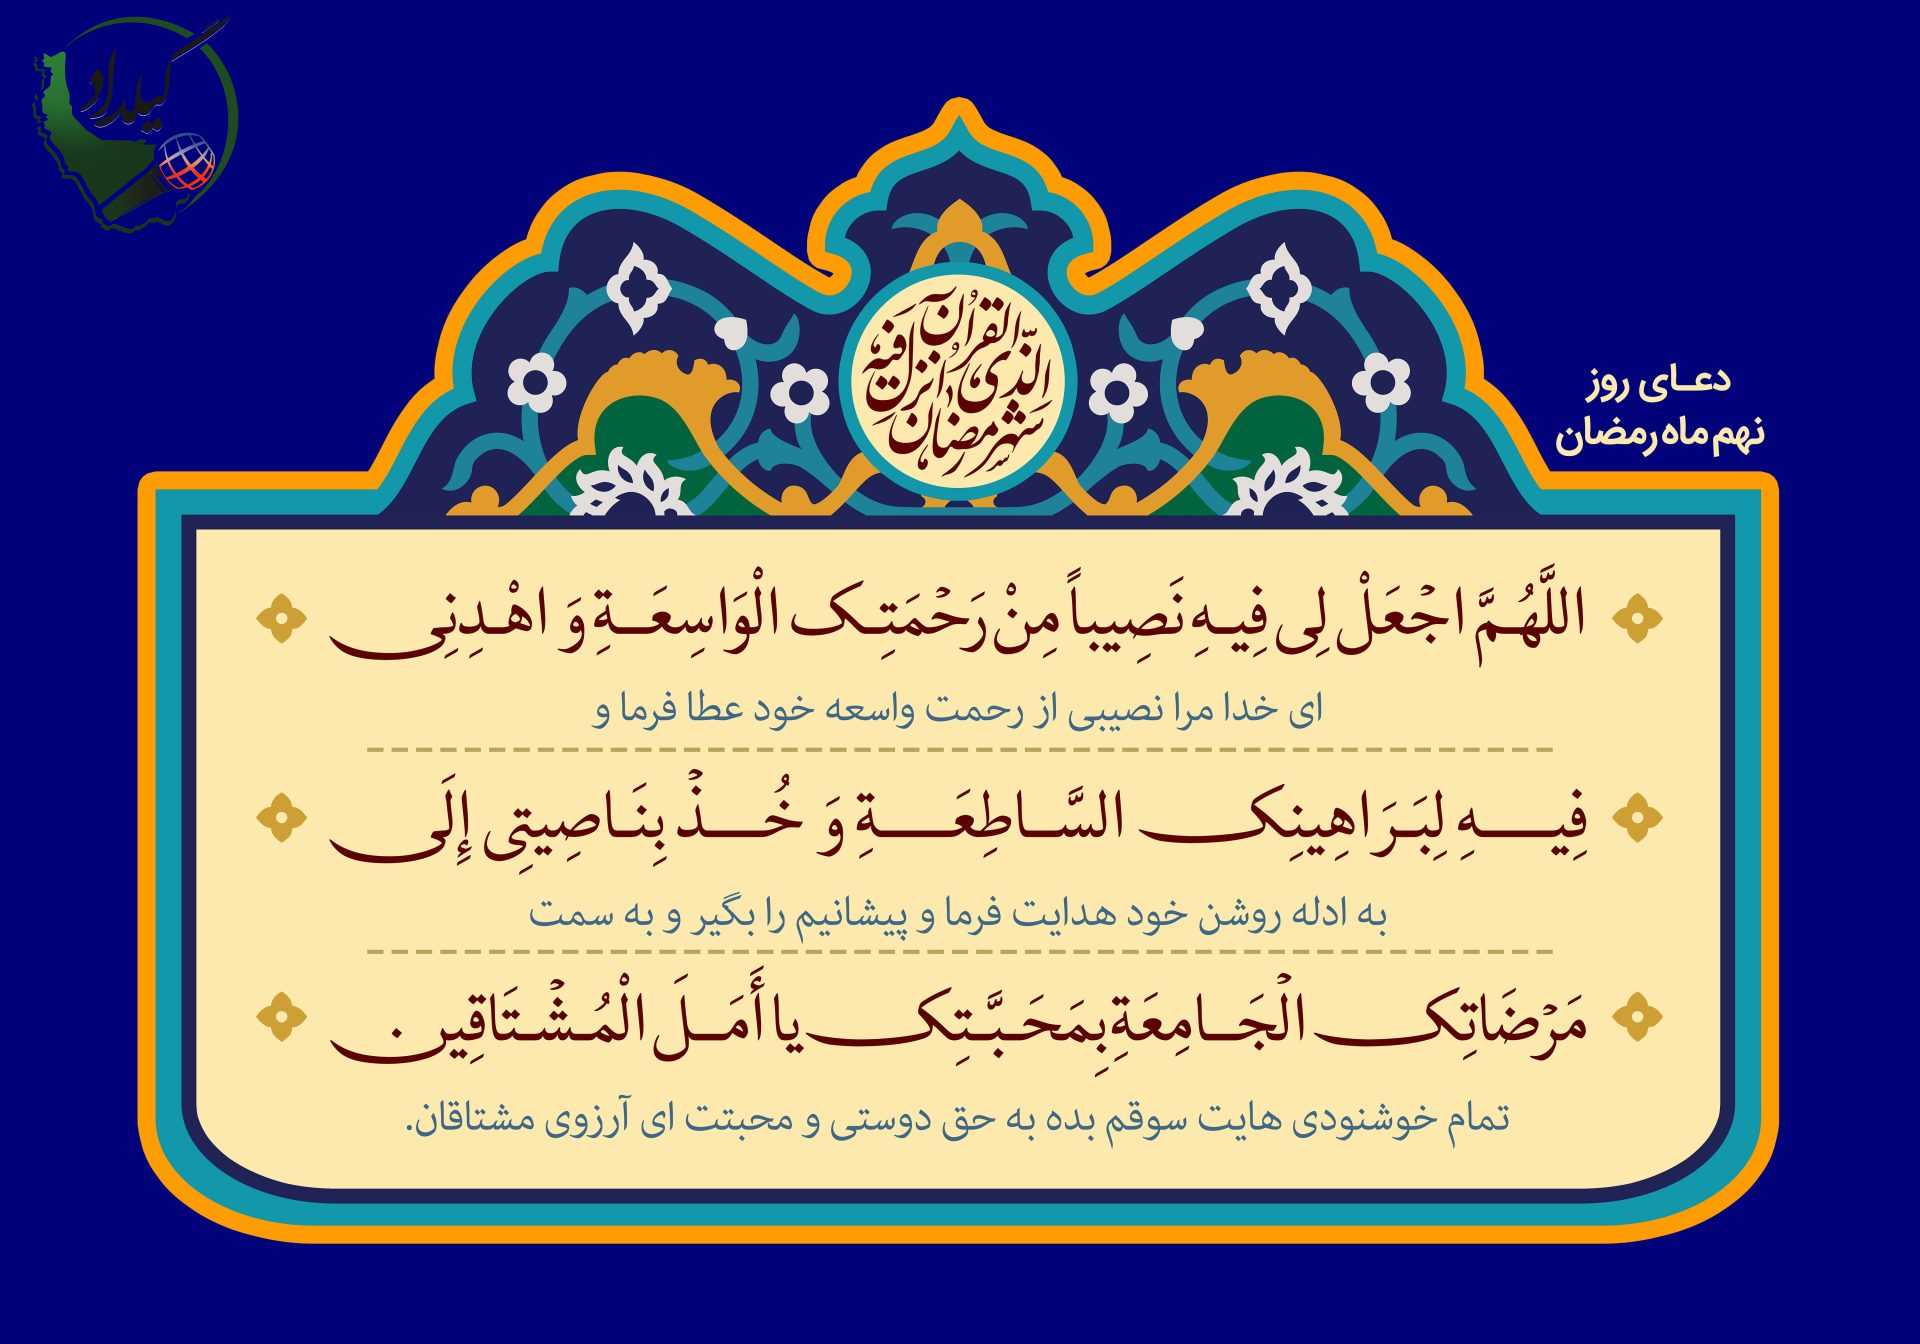 گیلداد
شهر رمضان الّذی انزل فیه القرآن
دعـای روز
نهم ماه رمضان
اللَّهُمَّ اجْعَلْ لِی فِیهِ نَصِیباً مِنْ رَحْمَتِک الْوَاسِعَةِ وَ اهْدِنِی
ای خدا مرا نصیبی از رحمت واسعه خود عطا فرما و
فِیهِ لِبَرَاهِینِک السَّاطِعَةِ وَ خُذْ بِنَاصِیتِی إِلَی
به ادله روشن خود هدایت فرما و پیشانیم را بگیر و به سمت
مَرْضَاتِک الْجَامِعَةِ بِمَحَبَّتِک یا أَمَلَ الْمُشْتَاقِین.
تمام خوشنودی هایت سوقم بده به حق دوستی و محبتت ای آرزوی مشتاقان.